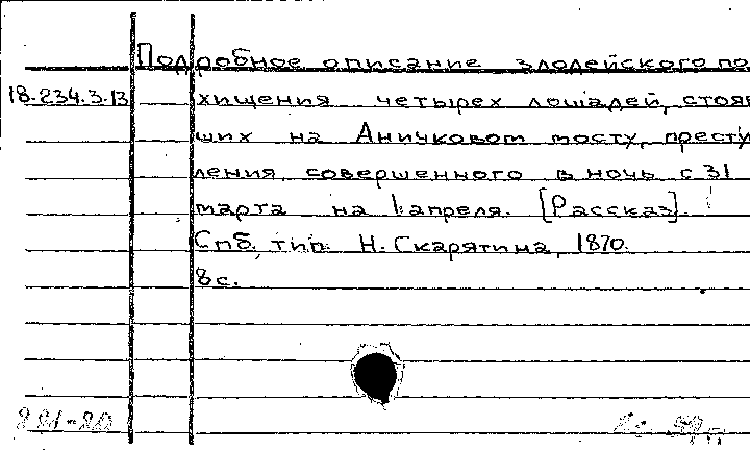 Подробное описание злодейского по
18.234.3.13 хищения четырех лошадей, стояв
ших на Аничковом мосту, престу
ления, совершенного в ночь с 31
марта на 1 апреля. [Рассказ].
Спб, тип. Н. Скарятина, 1870.
8 с.